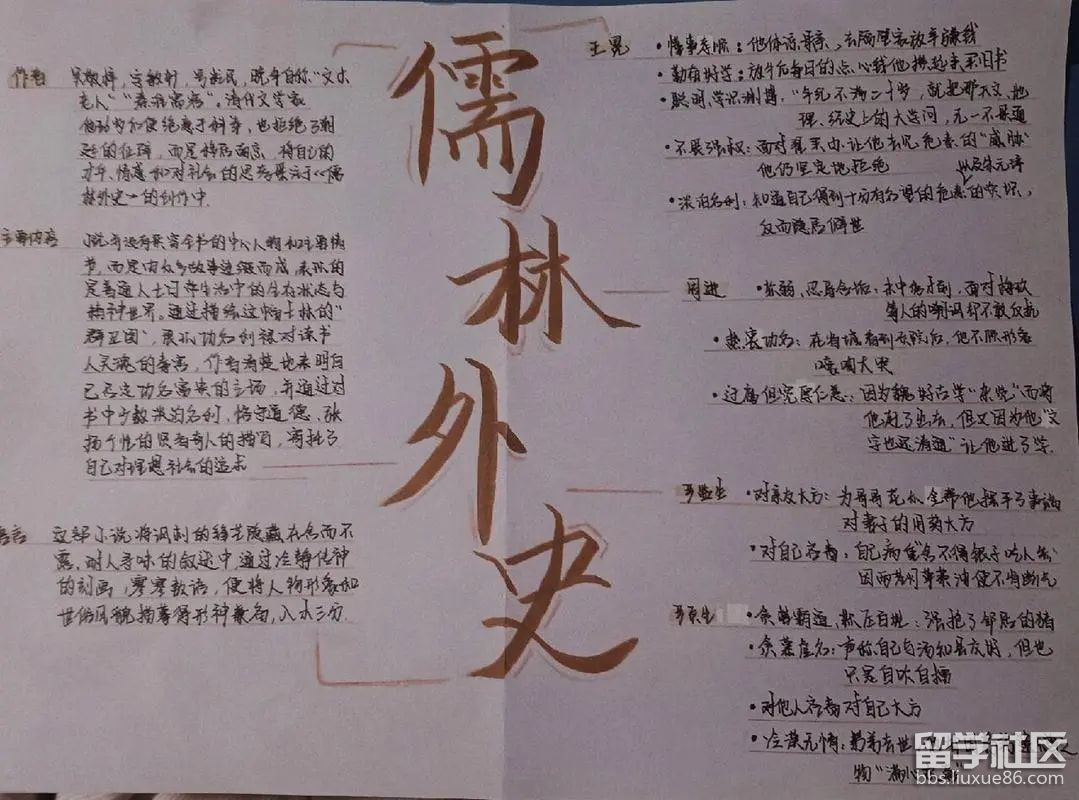 儒林外史
作者 吴敬梓,字敏轩,号粒民,晚年自称"文木
老人""秦淮寓客"。清代文学家
也拒绝了朝
廷的征辟,而是移居南京,将自己的
才华、情感和对社会的思考倾注于《儒
林外史》的创作中
主要内容 小说并没有贯穿全书的中心人物和主要情
节,而是由众多故事连缀而成,表现的
是普通人士日常生活中的生存状态与
精神世界。通过描绘这幅士林的"
群丑图",展示功名利禄对读书
人灵魂的毒害,作者清楚地表明自
己否定功名富贵的立场,并通过对
书中少数淡泊名利、恪守道德、张
扬个性的贤者奇人的描写,寄托了
自己对理想社会的追求
语言 这部小说将讽刺的锋芒隐藏在含而不
露、耐人寻味的叙述中,通过冷静传神
的刻画,寥寥数语,便将人物形象和
世俗风貌描摹得形神兼备,入木三分
王冕 •懂事孝顺:他体谅母亲,去隔壁家放牛赚钱
•勤奋好学:放牛后每日的点心钱他攒起来买旧书
•聪明,学识渊博:"年纪不满二十岁,就把那天文、地
理、经史上的大学问,无一不贯通
•不畏强权:面对翟买办让他去见危素的"威胁"
他仍坚定地拒绝
•淡泊名利:知道自己得到十分有名望的危素 以及朱元璋的赏识,
反而隐居避世
周进 •软弱、忍辱含垢:未中秀才前,面对梅玖
等人的嘲讽却不敢反抗
•热衷功名:在省城看到贡院后,他不顾形象
嚎啕大哭
•迂腐但宽厚仁慈:因为魏好古学"杂览"而将
他赶了出去,但又因为他"文
字也还清通"让他进了学.
严监生 •对亲友大方:为哥哥花 全帮他摆平了事端
对妻子的用药大方
•对自己吝啬:自己病重舍不得银子吃人参
因两茎灯草费油便不肯断气
严贡生 •贪婪霸道,欺压百姓:强抢了邻居的猪
•贪慕虚名:声称自己与汤知县友好,但也
只是自吹自擂
•对他人吝啬对自己大方
•冷漠无情:弟弟去世
物"满心
留学社区
bbs.liuxue86.com